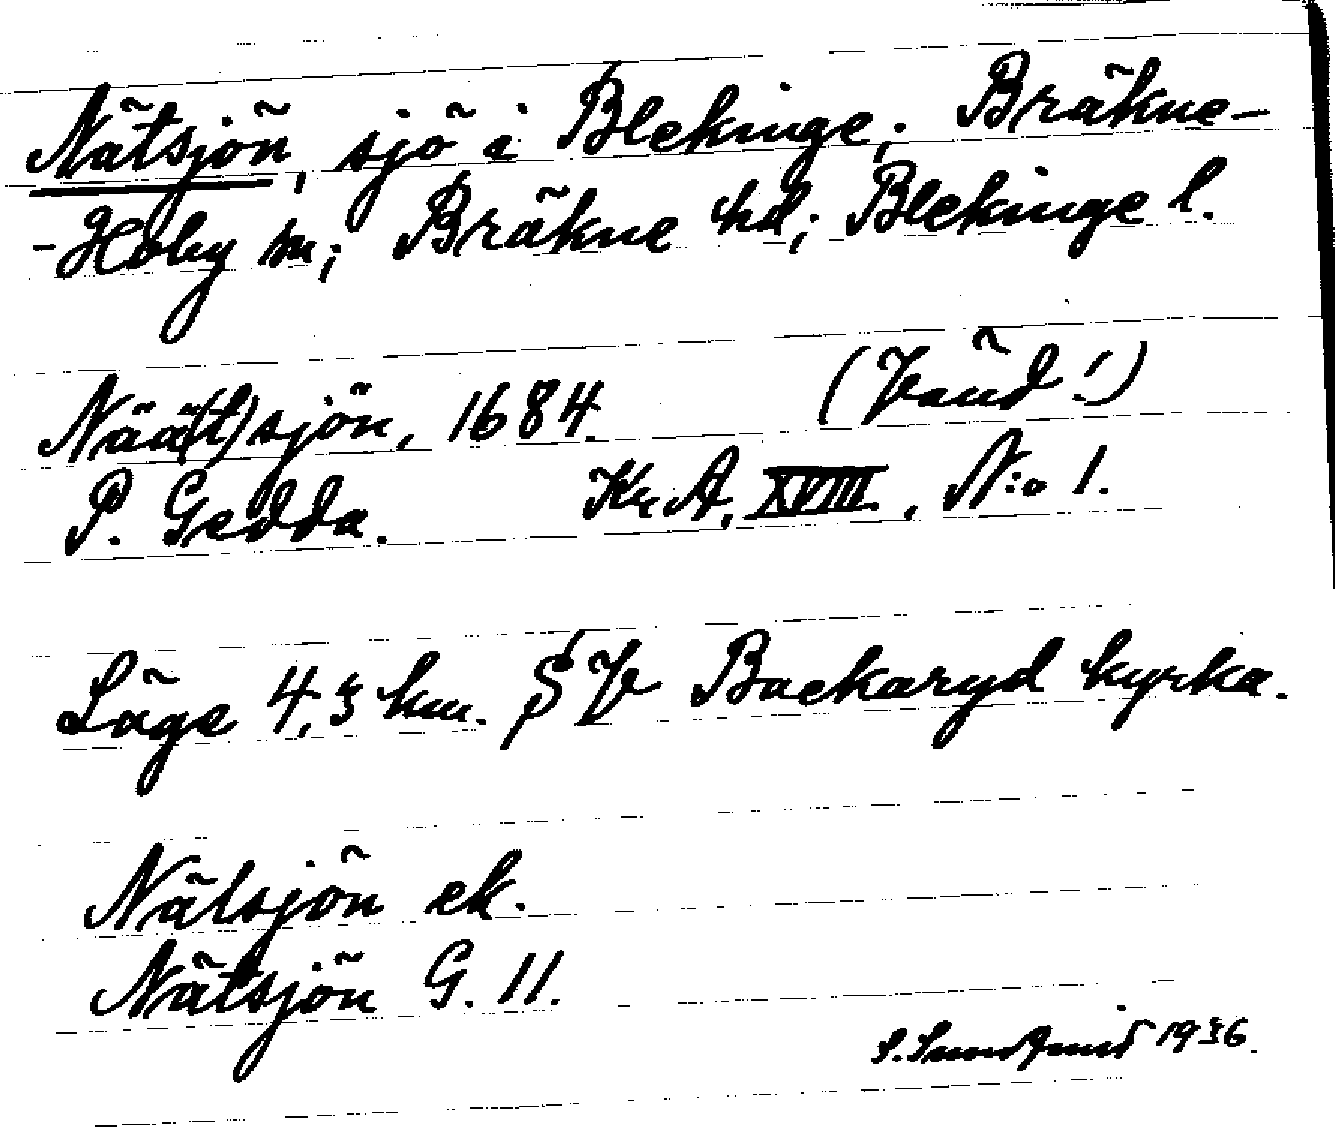 Nätsjön, sjö i Blekinge; Bräkne-
-Hoby sn; Bräkne hd; Blekinge l.
Nää(t)sjön, 1684. (Vänd!)
P. Gedda. Kr. A, XVIII., N:o 1.
Läge 4,3 km. SV Backaryd kyrka.
Nätsjön ek.
Nätsjön G. 11.
1936.